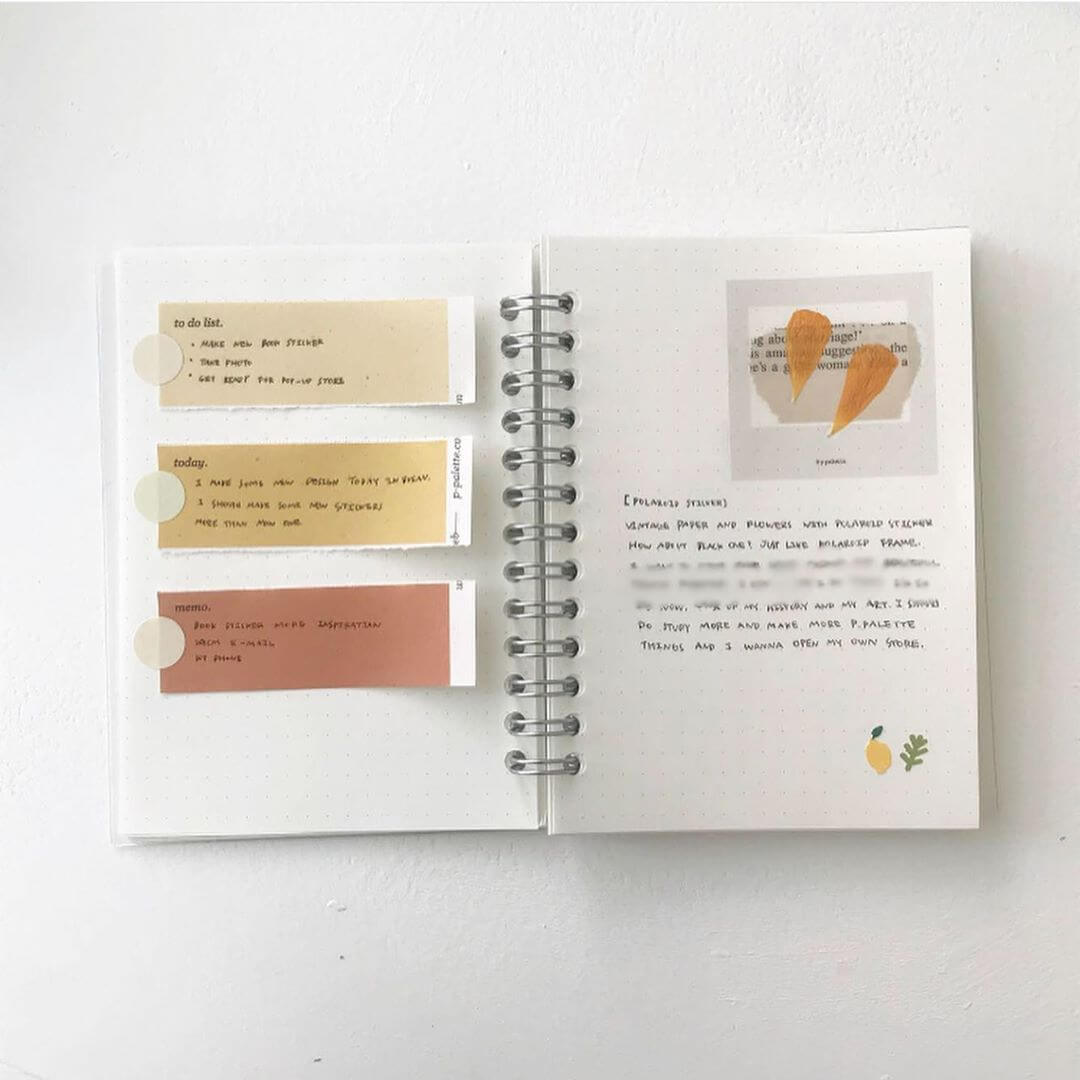 to do list.
• MAKE NEW BOOK STICKER
• TAKE PHOTO
• GET READY FOR POP-UP STORE
today.
I MADE SOME NEW DESIGN TODAY IN
I SHOULD MAKE SOME NEW STICKERS
MORE THAN NOW
p-palette.co
memo.
BOOK STICKER MORE INSPIRATION
E-MAIL
MY PHONE
ug abou
is ama suggesti the
e's a g woma a
[POLAROID STICKER]
VINTAGE PAPER AND FLOWERS WITH POLAROID STICKER
HOW ABOUT BLACK ONE? JUST LIKE POLAROID FRAME.
NOW, OF MY HISTORY AND MY ART. I SHOULD
DO STUDY MORE AND MAKE MORE P.PALETTE
THINGS AND I WANNA OPEN MY OWN STORE.